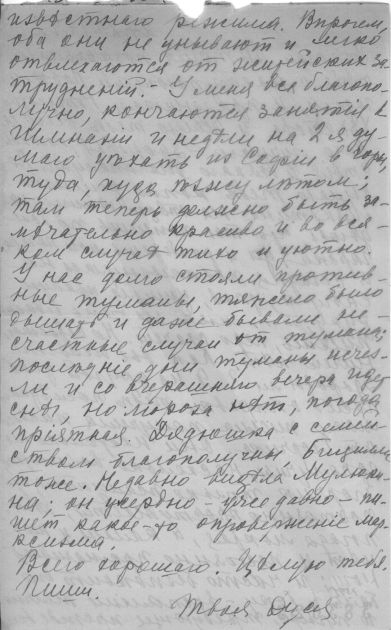 извѣстнаго режима. Впрочем,
оба они не унывают и легко
отвлекаются от житейских за-
труднений. - У меня все благопо-
лучно, кончаются занятія в
гимназіи и недѣли на 2 я ду
маю уѣхать из Софіи в горы,
туда, куда ѣзжу лѣтом;
там теперь должно быть за-
мѣчательно красиво и во вся-
ком случаѣ тихо и уютно.
У нас долго стояли против
ные туманы, тяжело было
дышать и даже бывали не-
счастные случаи от тумана;
послѣдніе дни туманы исчез-
ли и со вчерашняго вечера идет
снѣг, но мороза нѣт, погода
пріятная. Дядюшка с семей
ством благополучны,
тоже. Недавно видѣла
на; он усердно - уже давно - пи-
шет какое-то опроверженіе мар-
ксизма.
Всего хорошаго. Цѣлую тебя.
Пиши.
Твоя Дуся